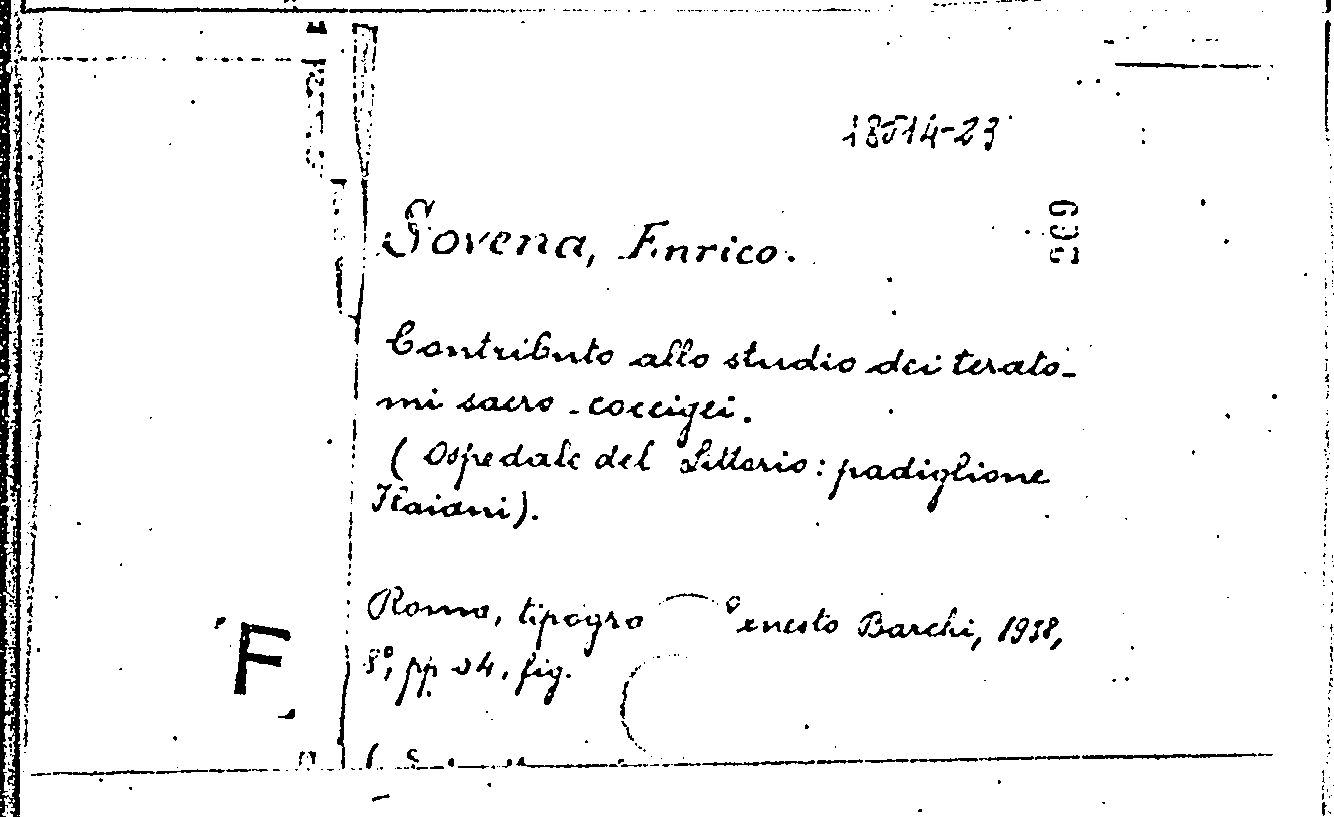 18514-23
Sovena, Enrico.
Contributo allo studio dei terato-
mi sacro-coccigei.
(Ospedale del Littorio: padiglione
Flaiani).
Roma, tipogra Ernesto Barchi, 1938,
8°, pp 24, fig.
F